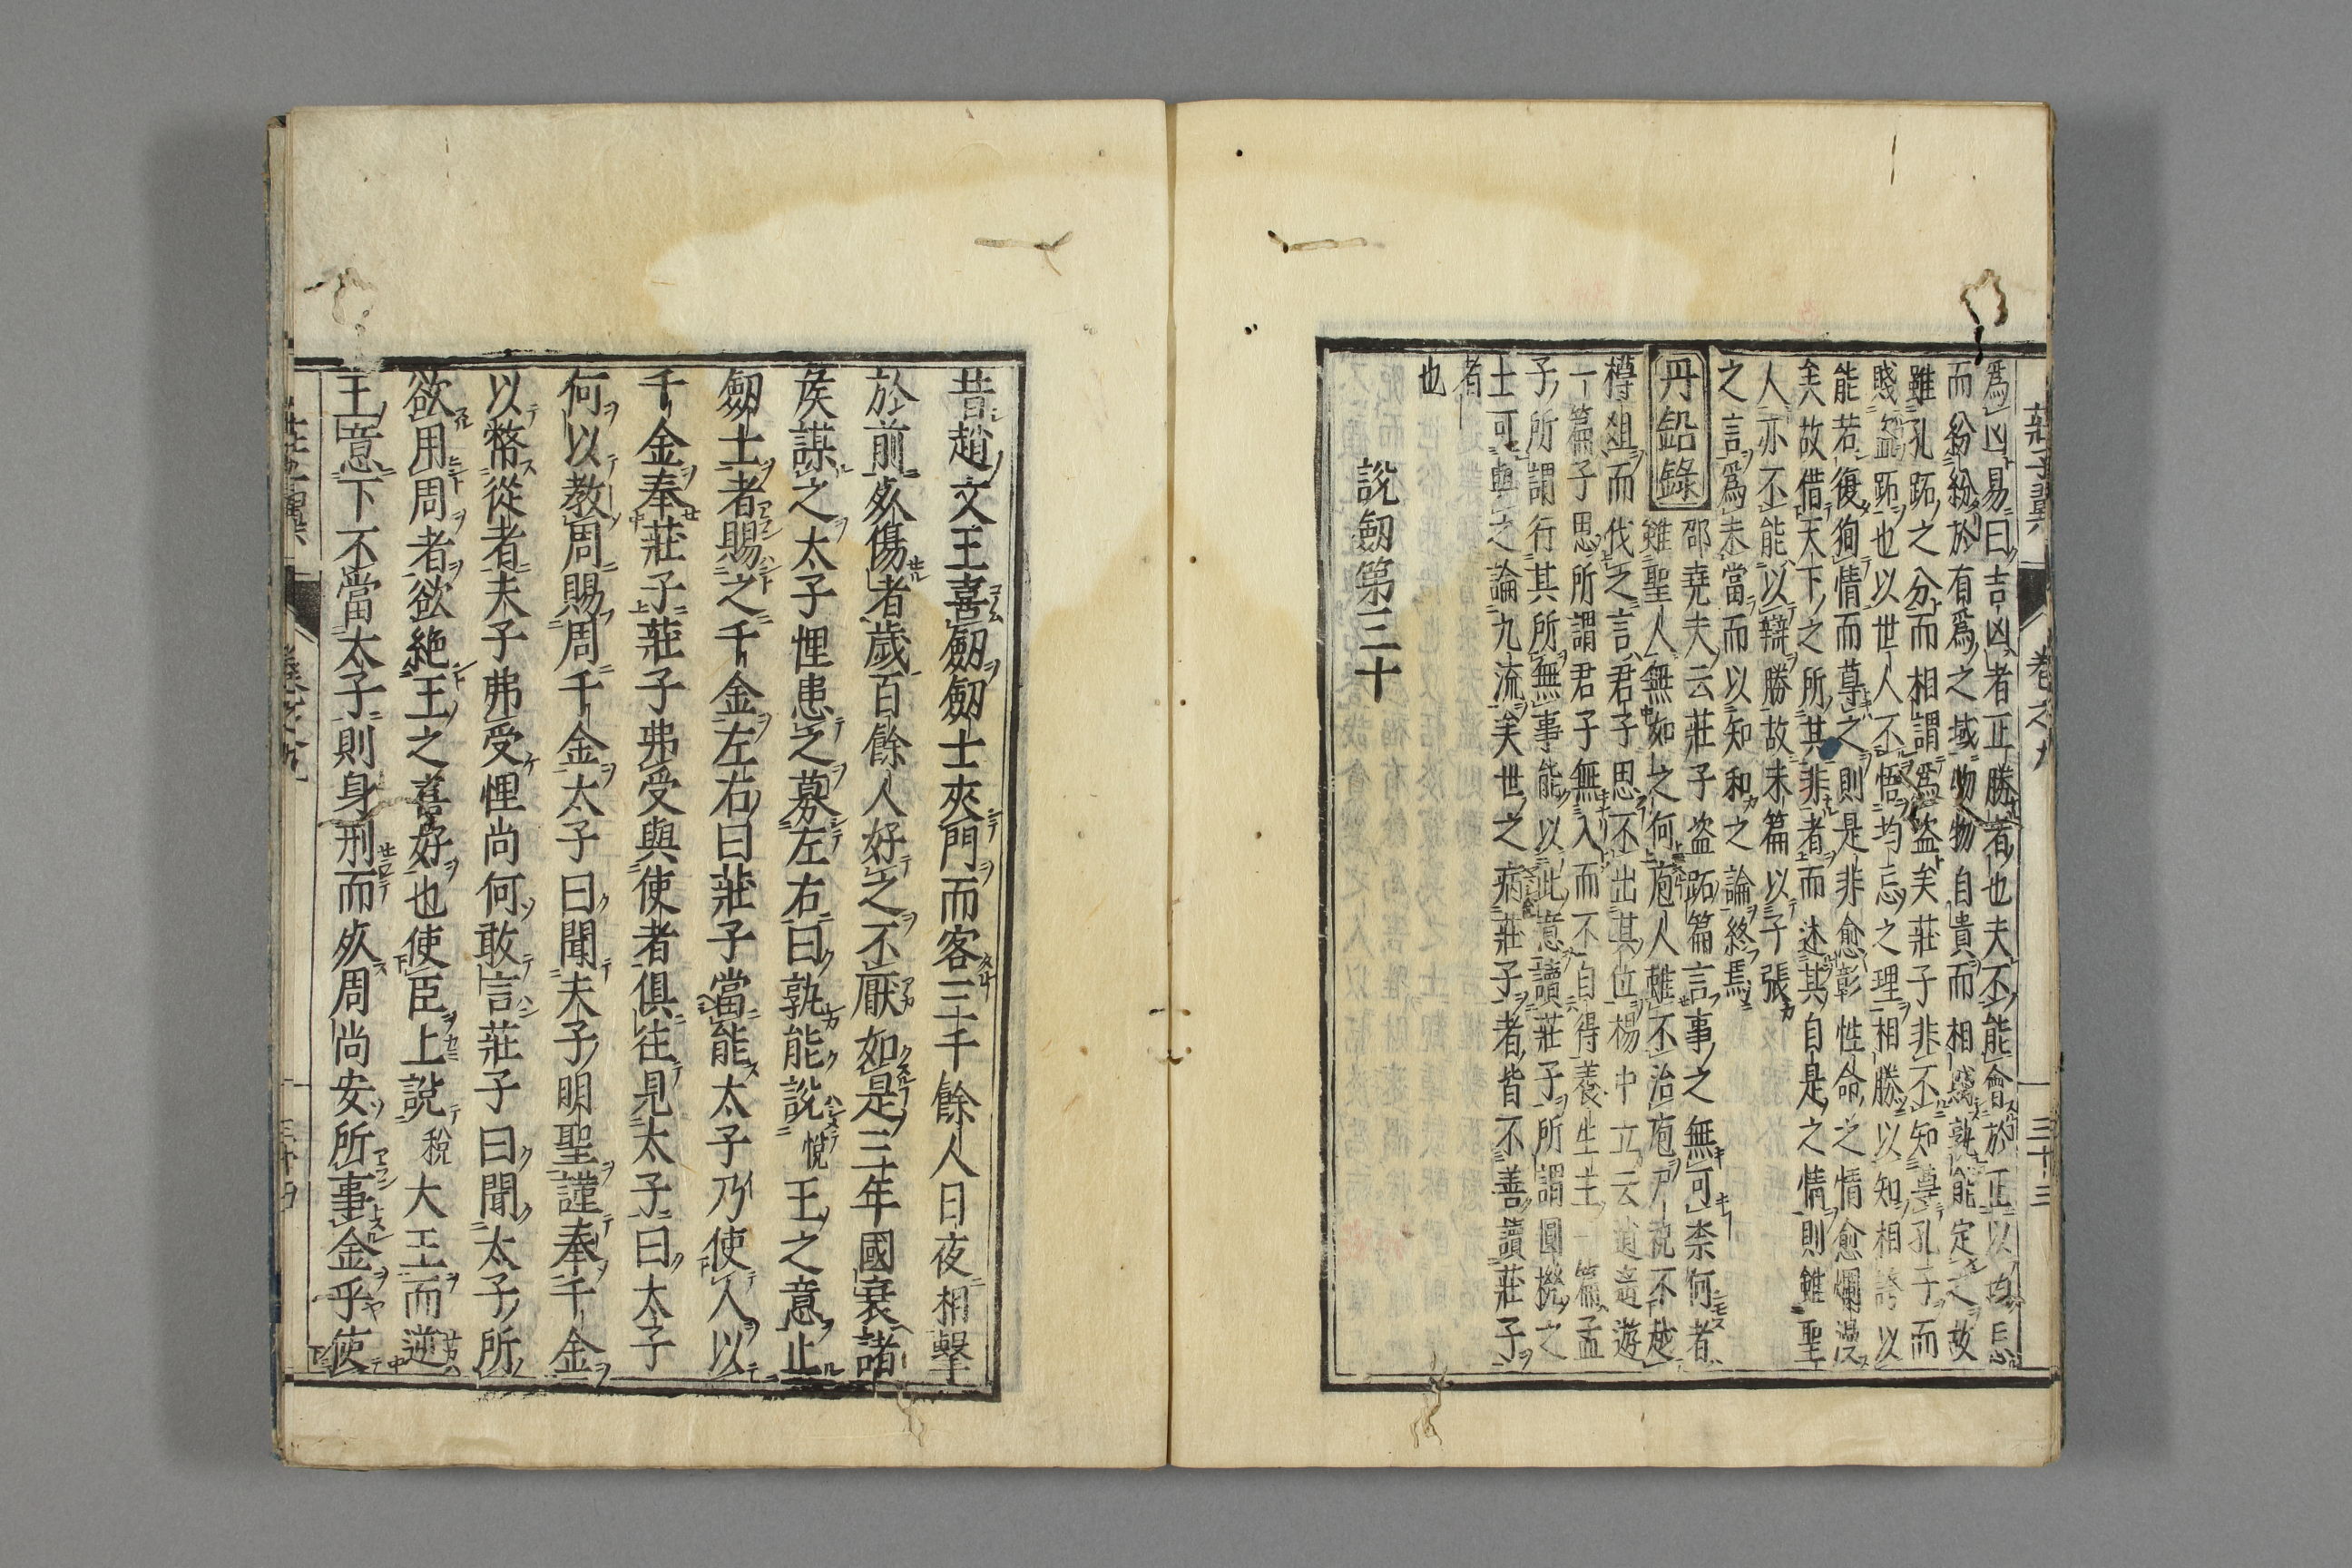 莊子翼 卷之九 三十三
為凶易曰吉凶者正勝者也夫不能會於正以均忘
而紛紛於有為之域物物自貴而相惑孰能定之故
雖孔跖之分而相謂為盗矣莊子非不知尊孔子而
賤盗跖也以世人不悟均忘之理相勝以知相誇以
能若復狥情而尊之則是非愈彰性命之情愈爛漫
矣故借天下之所其非者而述其自是之情則雖聖
人亦不能以辯勝故末篇以子張
之言為未當而以知和之論終焉
丹鉛錄
邵堯夫云莊子盗跖篇言事之無可柰何者
雖聖人無如之何庖人雖不治庖尸祝不越
樽俎而代之言君子思不出其位楊中立云逍遥遊
一篇子思所謂君子無入而不自得養生主一篇孟
子所謂行其所無事能以此意讀莊子所謂圓機之
士可與之論九流矣世之病莊子者皆不善讀莊子
者
也
說劒第三十
昔趙文王喜劒劒士夾門而客三千餘人日夜相擊
於前死傷者歲百餘人好之不厭如是三年國衰諸
矦謀之太子悝患之募左右曰孰能說悅王之意止
劒士者賜之千金左右曰莊子當能太子乃使人以
千金奉莊子莊子弗受與使者俱往見太子曰太子
何以教周賜周千金太子曰聞夫子明聖謹奉千金
以幣從者夫子弗受悝尚何敢言莊子曰聞太子所
欲用周者欲絶王之喜好也使臣上說稅大王而逆
王意下不當太子則身刑而死周尚安所事金乎使
莊子翼 卷之九 三十四